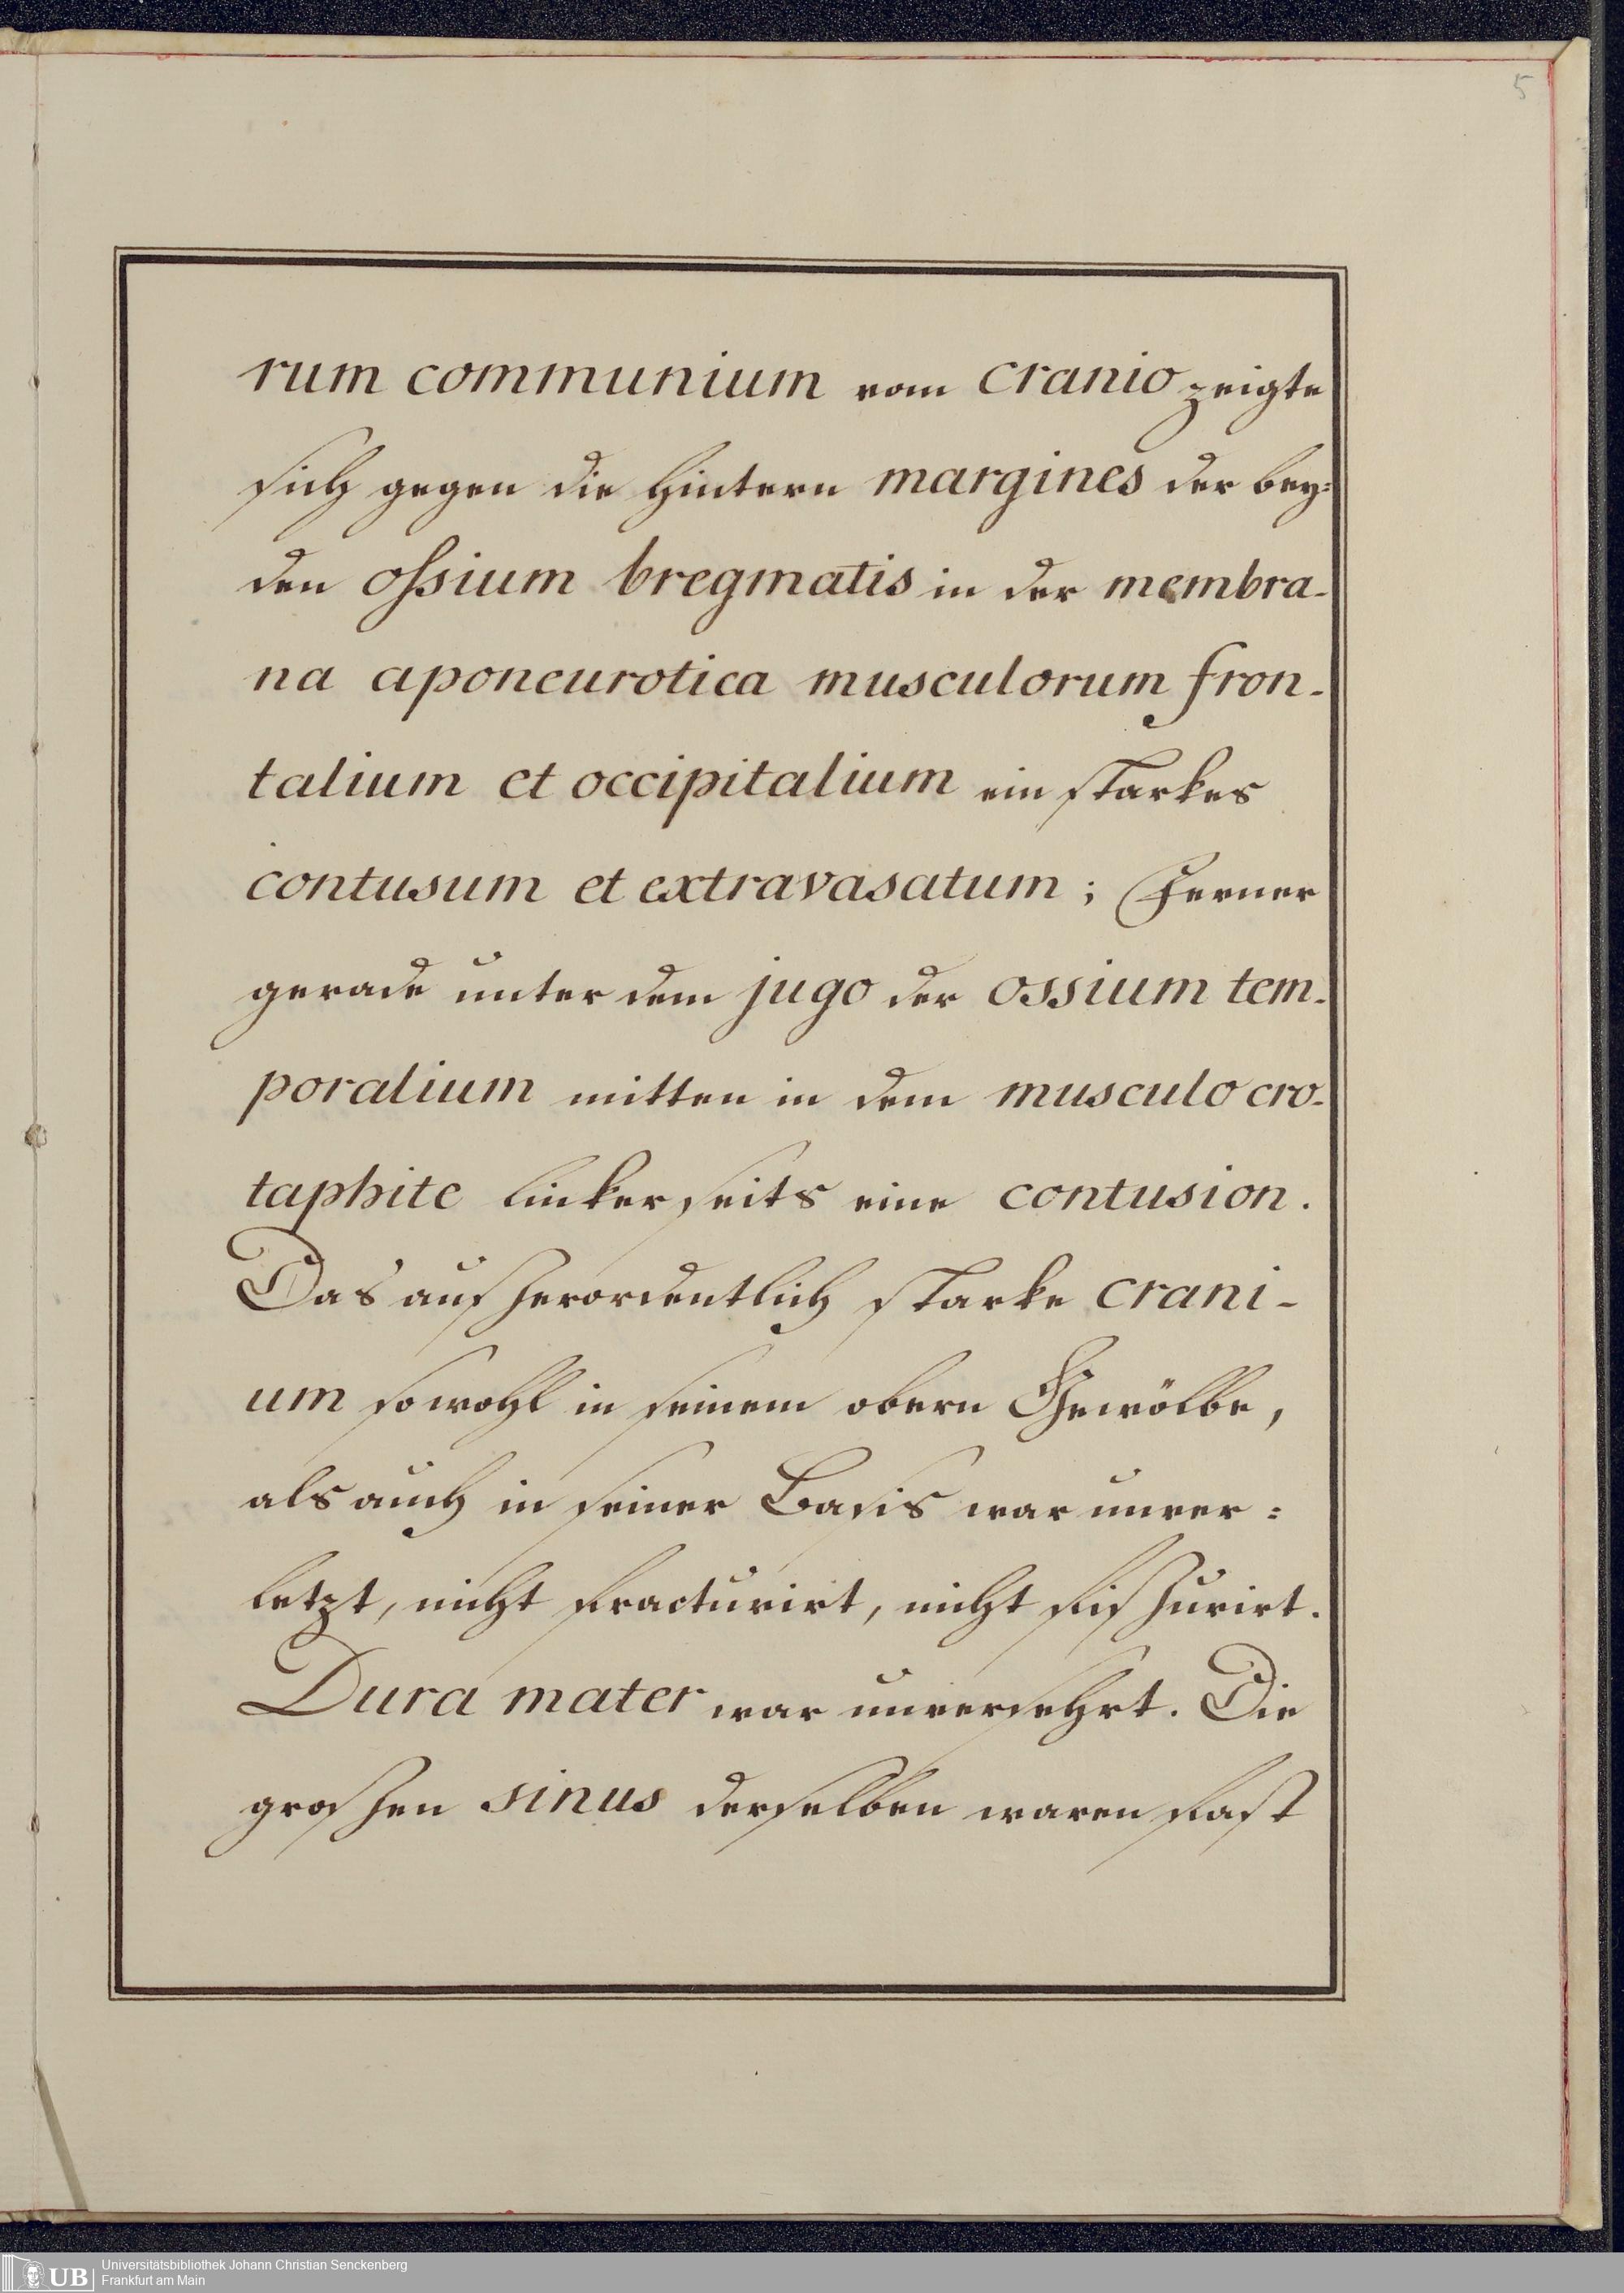 5
rum communium vom cranio zeigte
sich gegen die hintern margines der bey=
den ossium bregmatis in der membra-
na aponeurotica musculorum fron-
talium et occipitalium ein starkes
contusum et extravasatum; Ferner
gerade unter dem jugo der ossium tem-
poralium mitten in dem musculo cro-
taphite linkerseits eine contusion.
Das ausserordentlich starke crani-
um sowohl in seinem obern Gewölbe,
als auch in seiner Basis war unver=
letzt, nicht fracturirt, nicht fissurirt.
Dura mater war unversehrt. Die
grossen sinus derselben waren fast
UB
Universitätsbibliothek Johann Christian Senckenberg
Frankfurt am Main